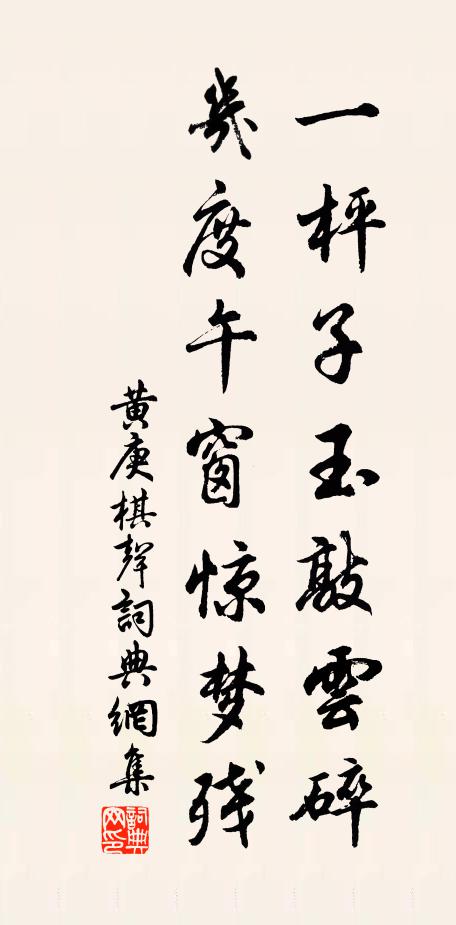 一枰子玉敲雲碎
幾度午窗惊梦残
黄庚棋聲詞典網集
詞典网印